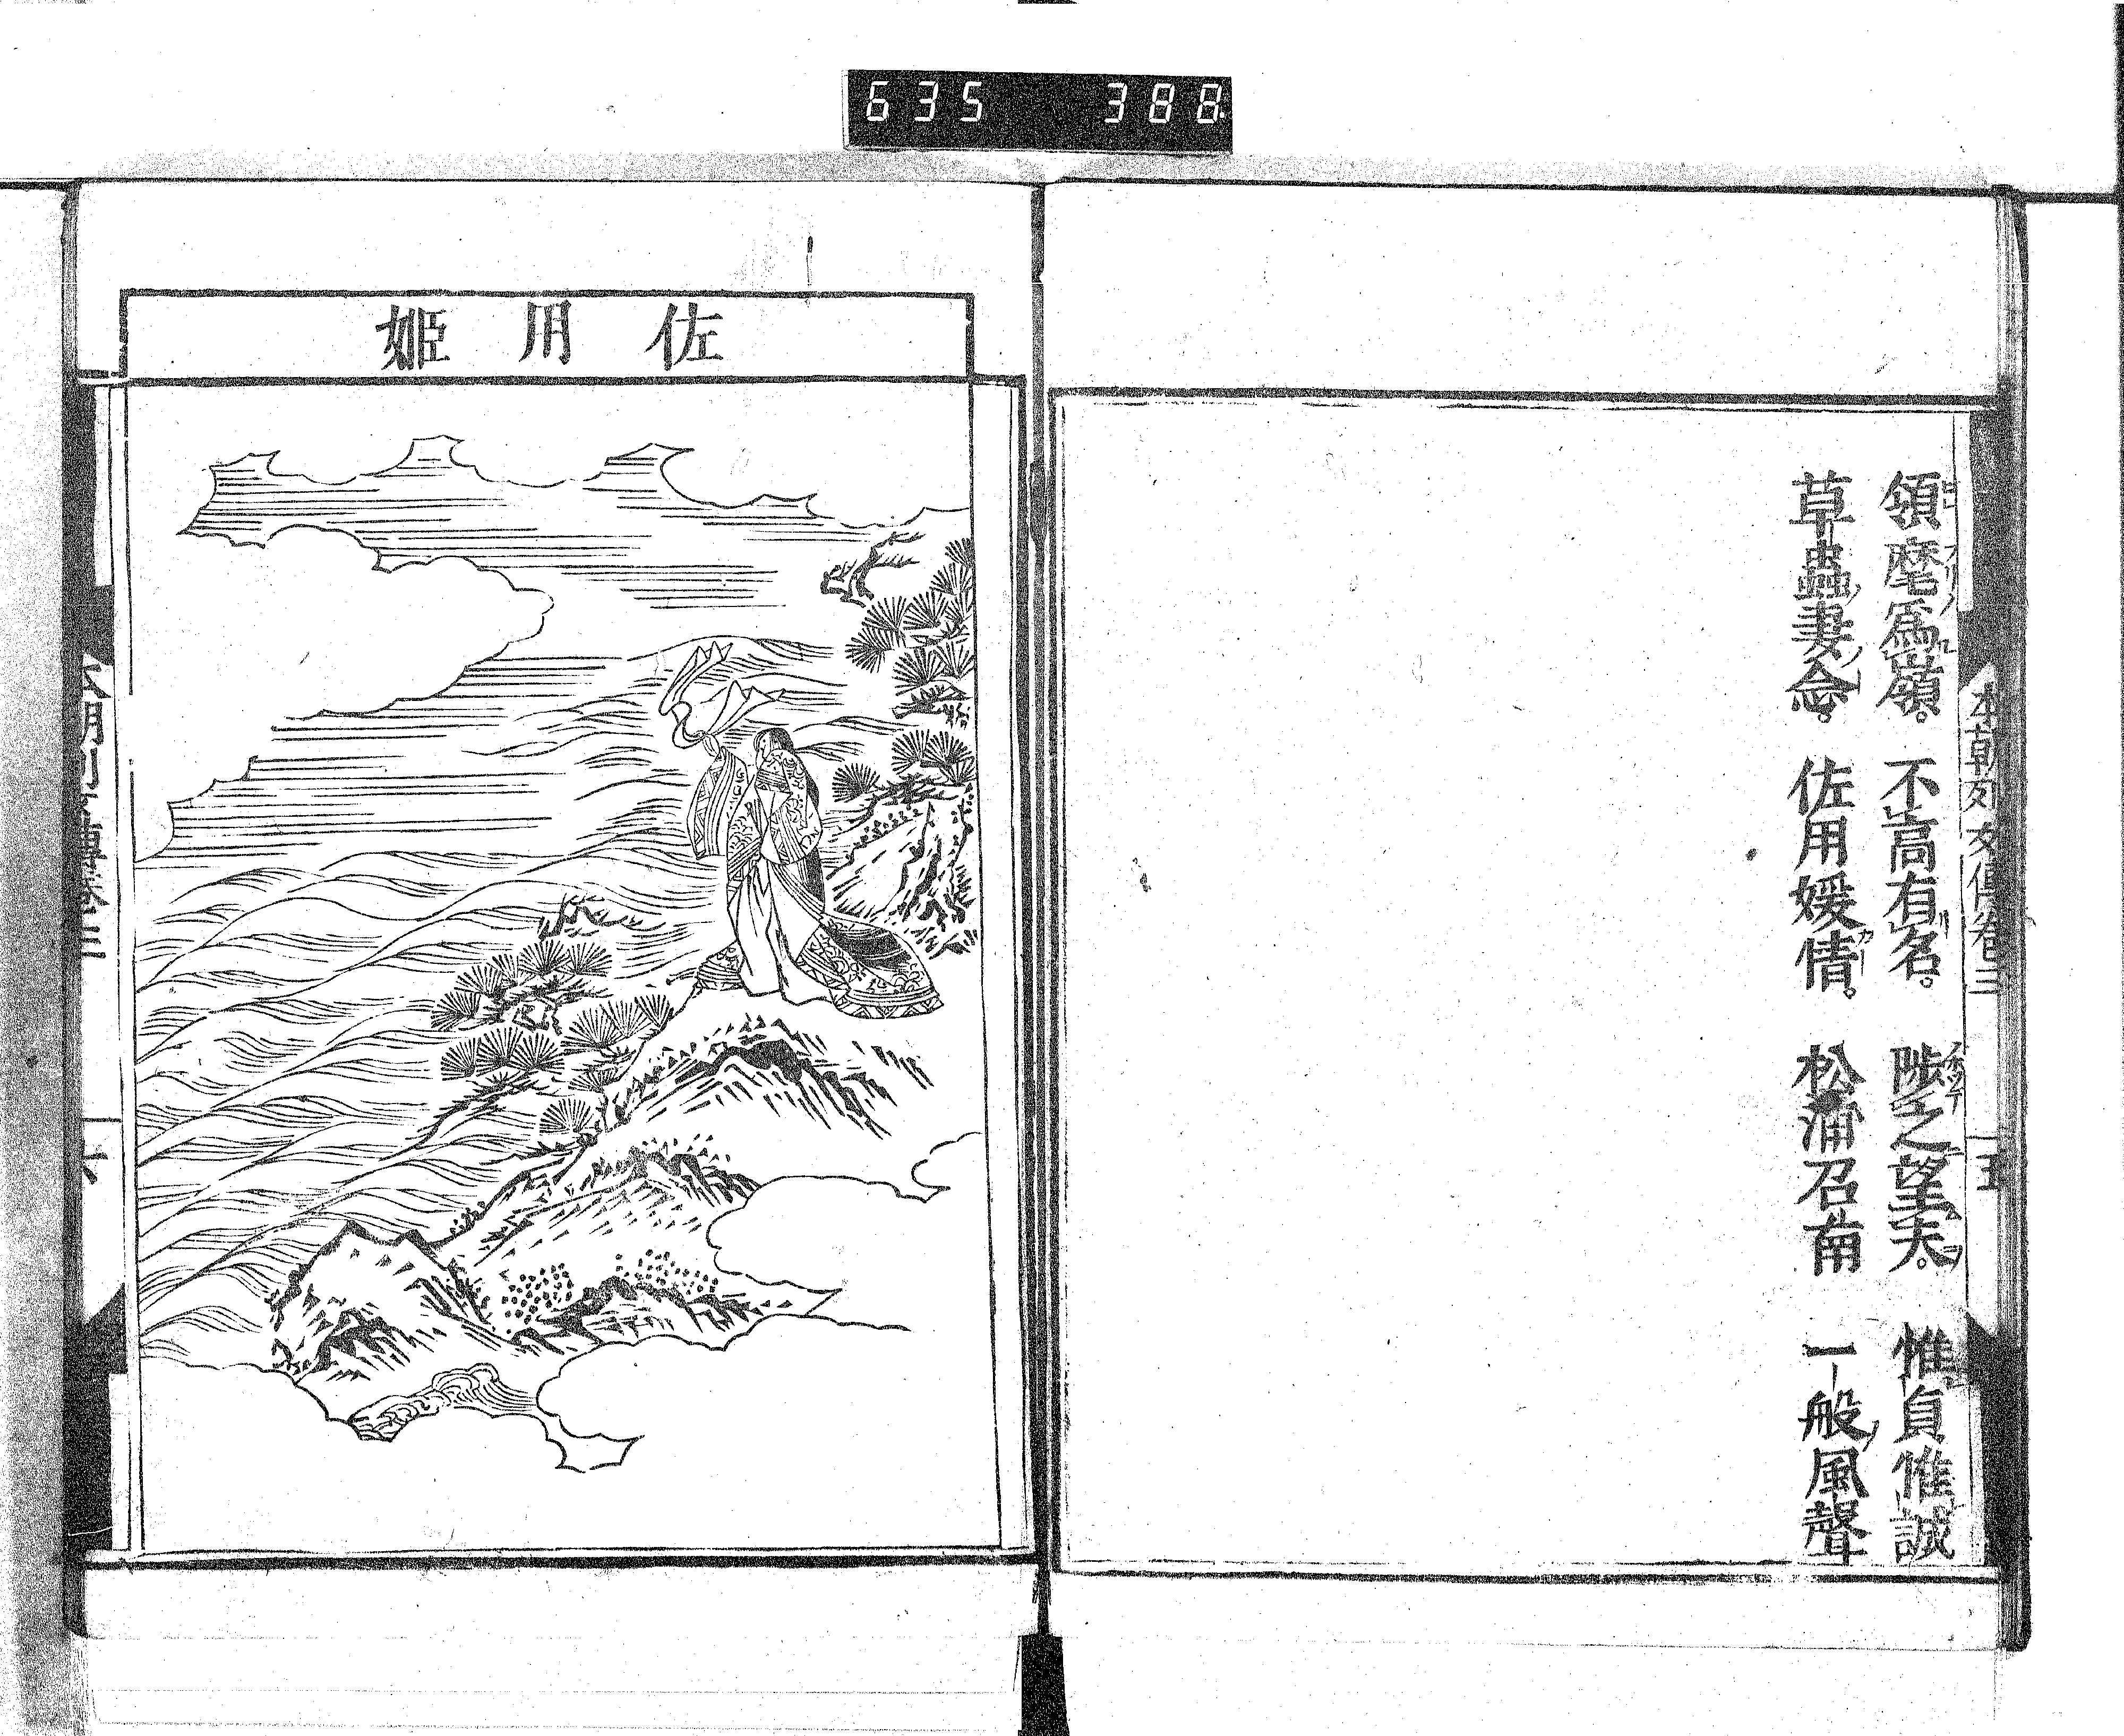 635 388
領麾為嶺。不高有名。陟之望夫。惟貞惟誠
草蟲妻念。佐用媛情。松浦召南 一般風聲
本朝列女傳卷三
五
佐用姫
本朝列女傳卷三
六